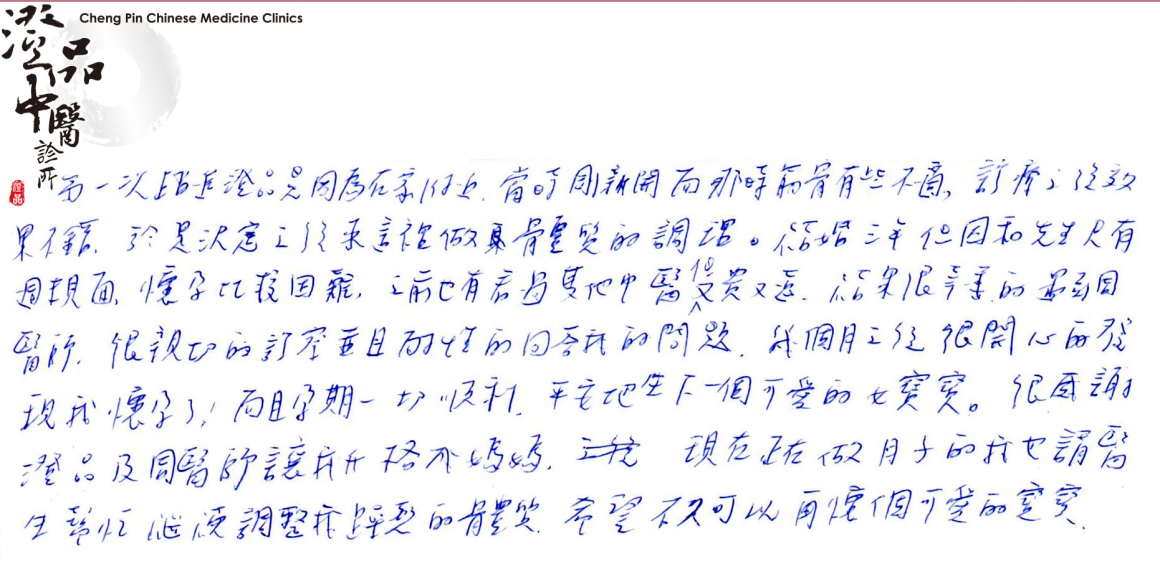 Cheng Pin Chinese Medicine Clinics
澄品中醫診所
澄品
第一次踏進澄品是因為在家附近,當時剛新開而那時筋骨有些不適,診療之後效
果不錯,於是決定之後來這裡做體質的調理。結婚三年但因和先生只有
週末見面,懷孕比較困難,之前也有看過其他中醫但又貴又遠,結果很幸運的遇到周
醫師,很親切的診察並且耐性的回答我的問題,幾個月之後很開心的發
現我懷孕了!而且孕期一切順利,平安地生下一個可愛的女寶寶。很感謝
澄品及周醫師讓我升格成媽媽,現在正在做月子的我也請醫
生幫忙繼續調整我的體質,希望不久可以再懷個可愛的寶寶.